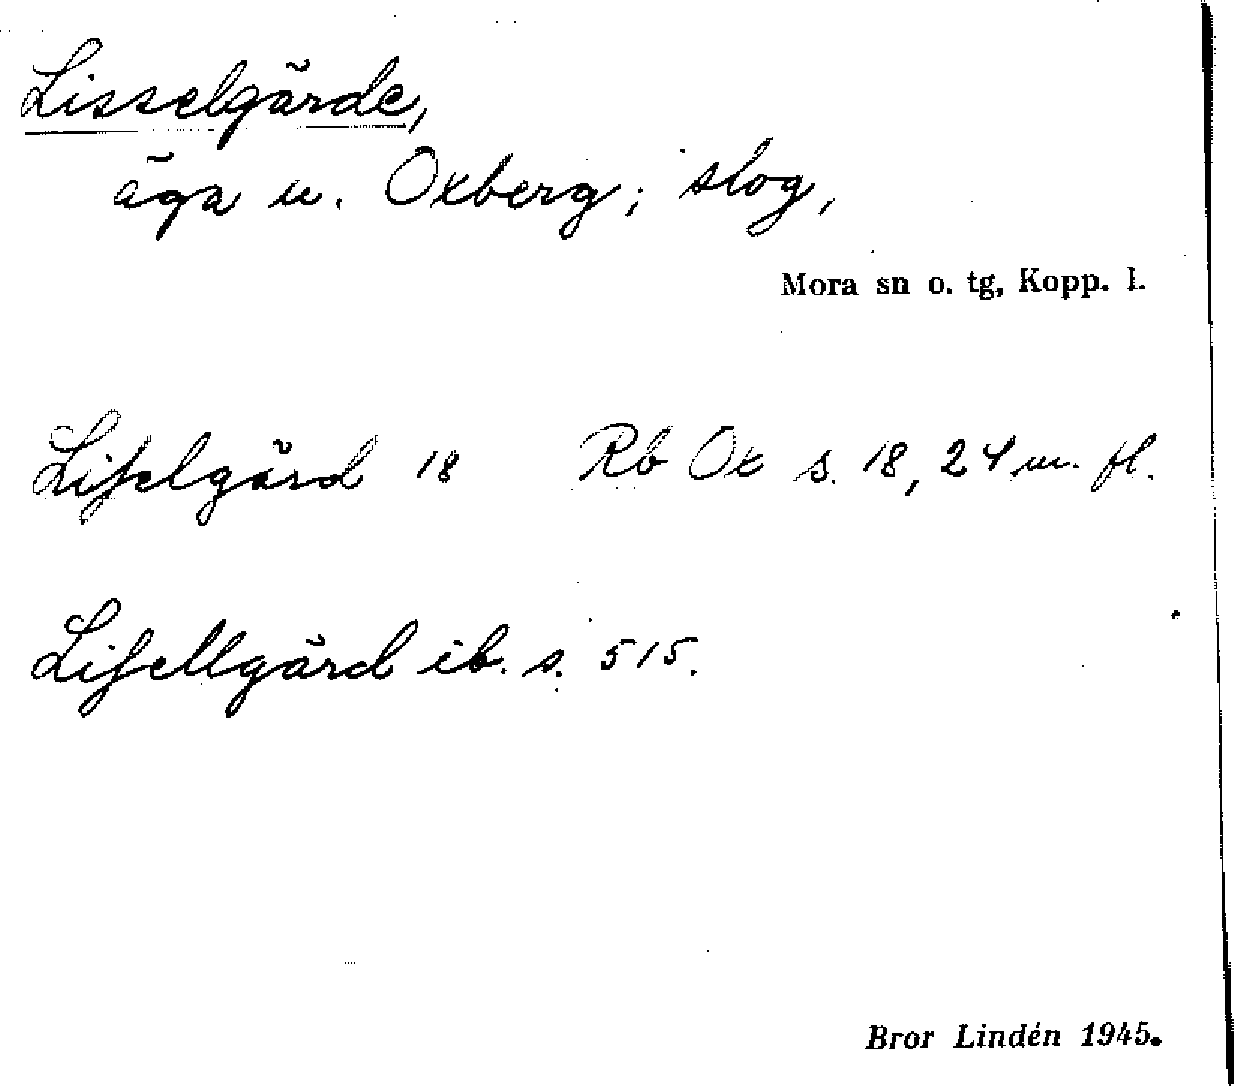 Lisselgärde,
äga u. Oxberg; slog,
Mora sn o. tg, Kopp. l.
Liſselgärd 18 Rb Ox s. 18, 24 m. fl.
Liſsellgärd ib. s. 515.
Bror Lindén 1945.